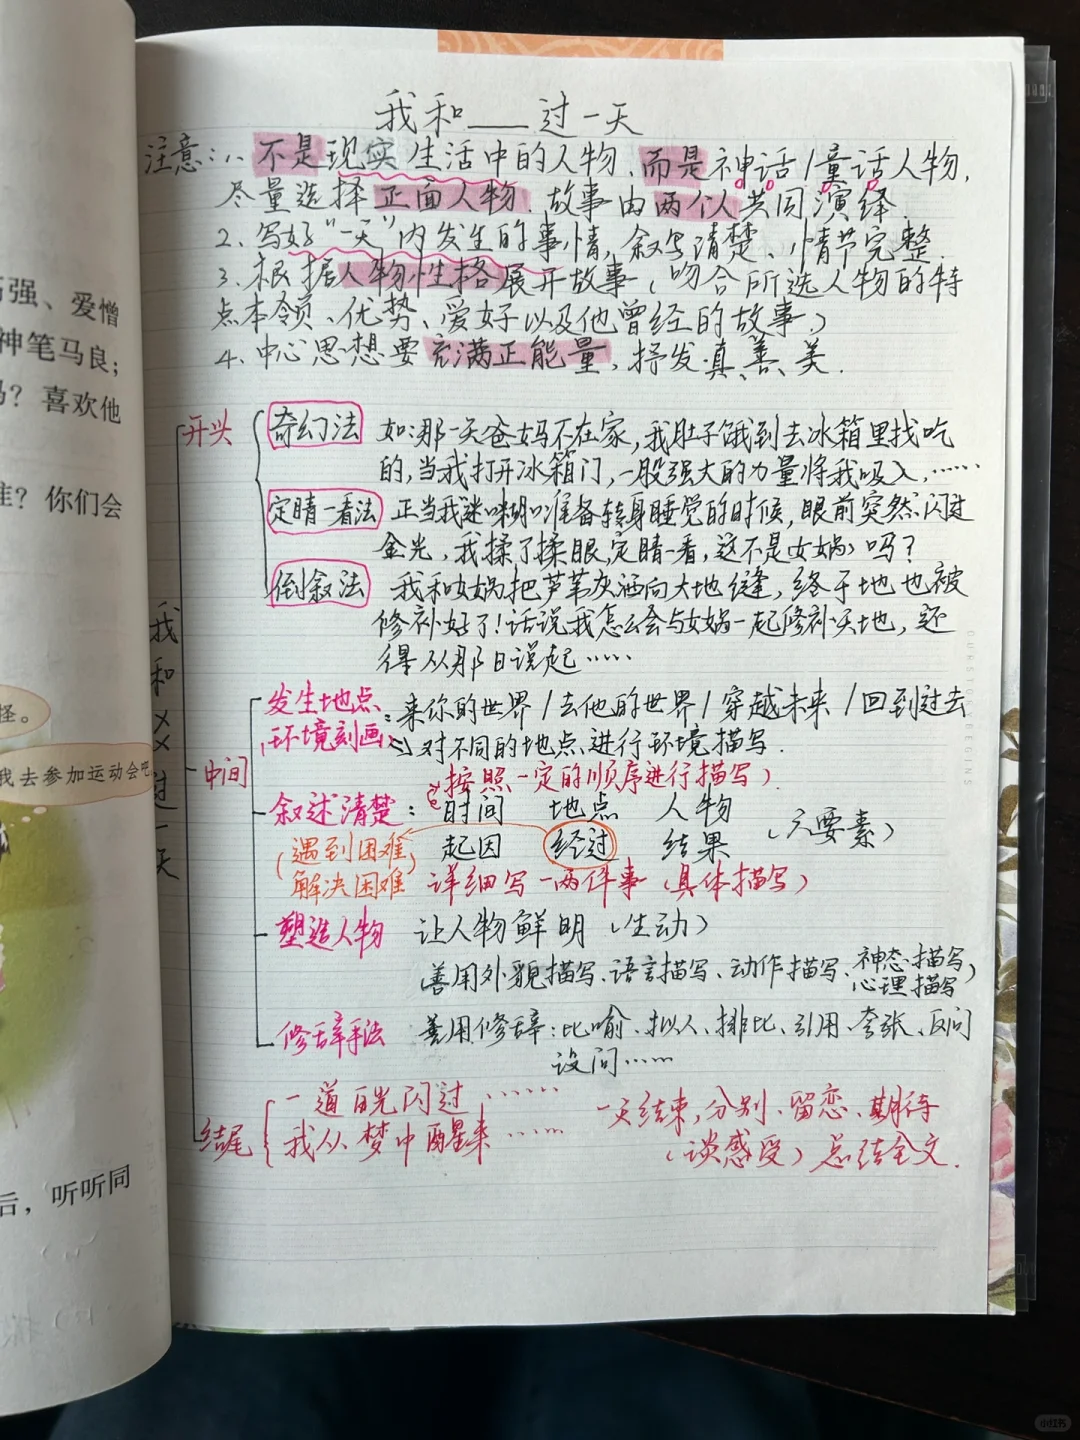 我和___过一天
注意:1、不是现实生活中的人物、而是神话/童话人物,
尽量选择正面人物.故事由两个人共同演绎.
2、写好“一天”内发生的事情,叙写清楚、情节完整.
3.根据人物性格展开故事(吻合所选人物的特
点本领、优势、爱好以及他曾经的故事)
4、中心思想要充满正能量,抒发真、善、美.
我和××过一天
开头
奇幻法 如:那一天爸妈不在家,我肚子饿到去冰箱里找吃
的,当我打开冰箱门,一股强大的力量将我吸入,……
定睛一看法 正当我迷迷糊糊准备转身睡觉的时候,眼前突然闪过
金光,我揉了揉眼,定睛一看,这不是女娲吗?
倒叙法 我和女娲把芦苇灰洒向大地缝,终于地也被
修补好了!话说我怎么会与女娲一起修补天地,还
得从那日说起……
中间
发生地点:来你的世界/去他的世界/穿越未来/回到过去
(环境刻画) 对不同的地点进行环境描写.
按照一定的顺序进行描写)
叙述清楚: 时间 地点 人物
(遇到困难 起因 经过 结果 (六要素)
解决困难) 详细写一两件事(具体描写)
塑造人物 让人物鲜明(生动)
善用外貌描写、语言描写、动作描写、神态描写,
心理描写
修辞手法 善用修辞:比喻、拟人、排比、引用、夸张、反问
设问……
结尾
一道白光闪过…… 一天结束,分别、留恋、期待
我从梦中醒来…… (谈感受)总结全文.
强、爱憎
神笔马良;
?喜欢他
?你们会
怪。
我去参加运动会吧
后,听听同
CURSTORYBEGINS
小红书